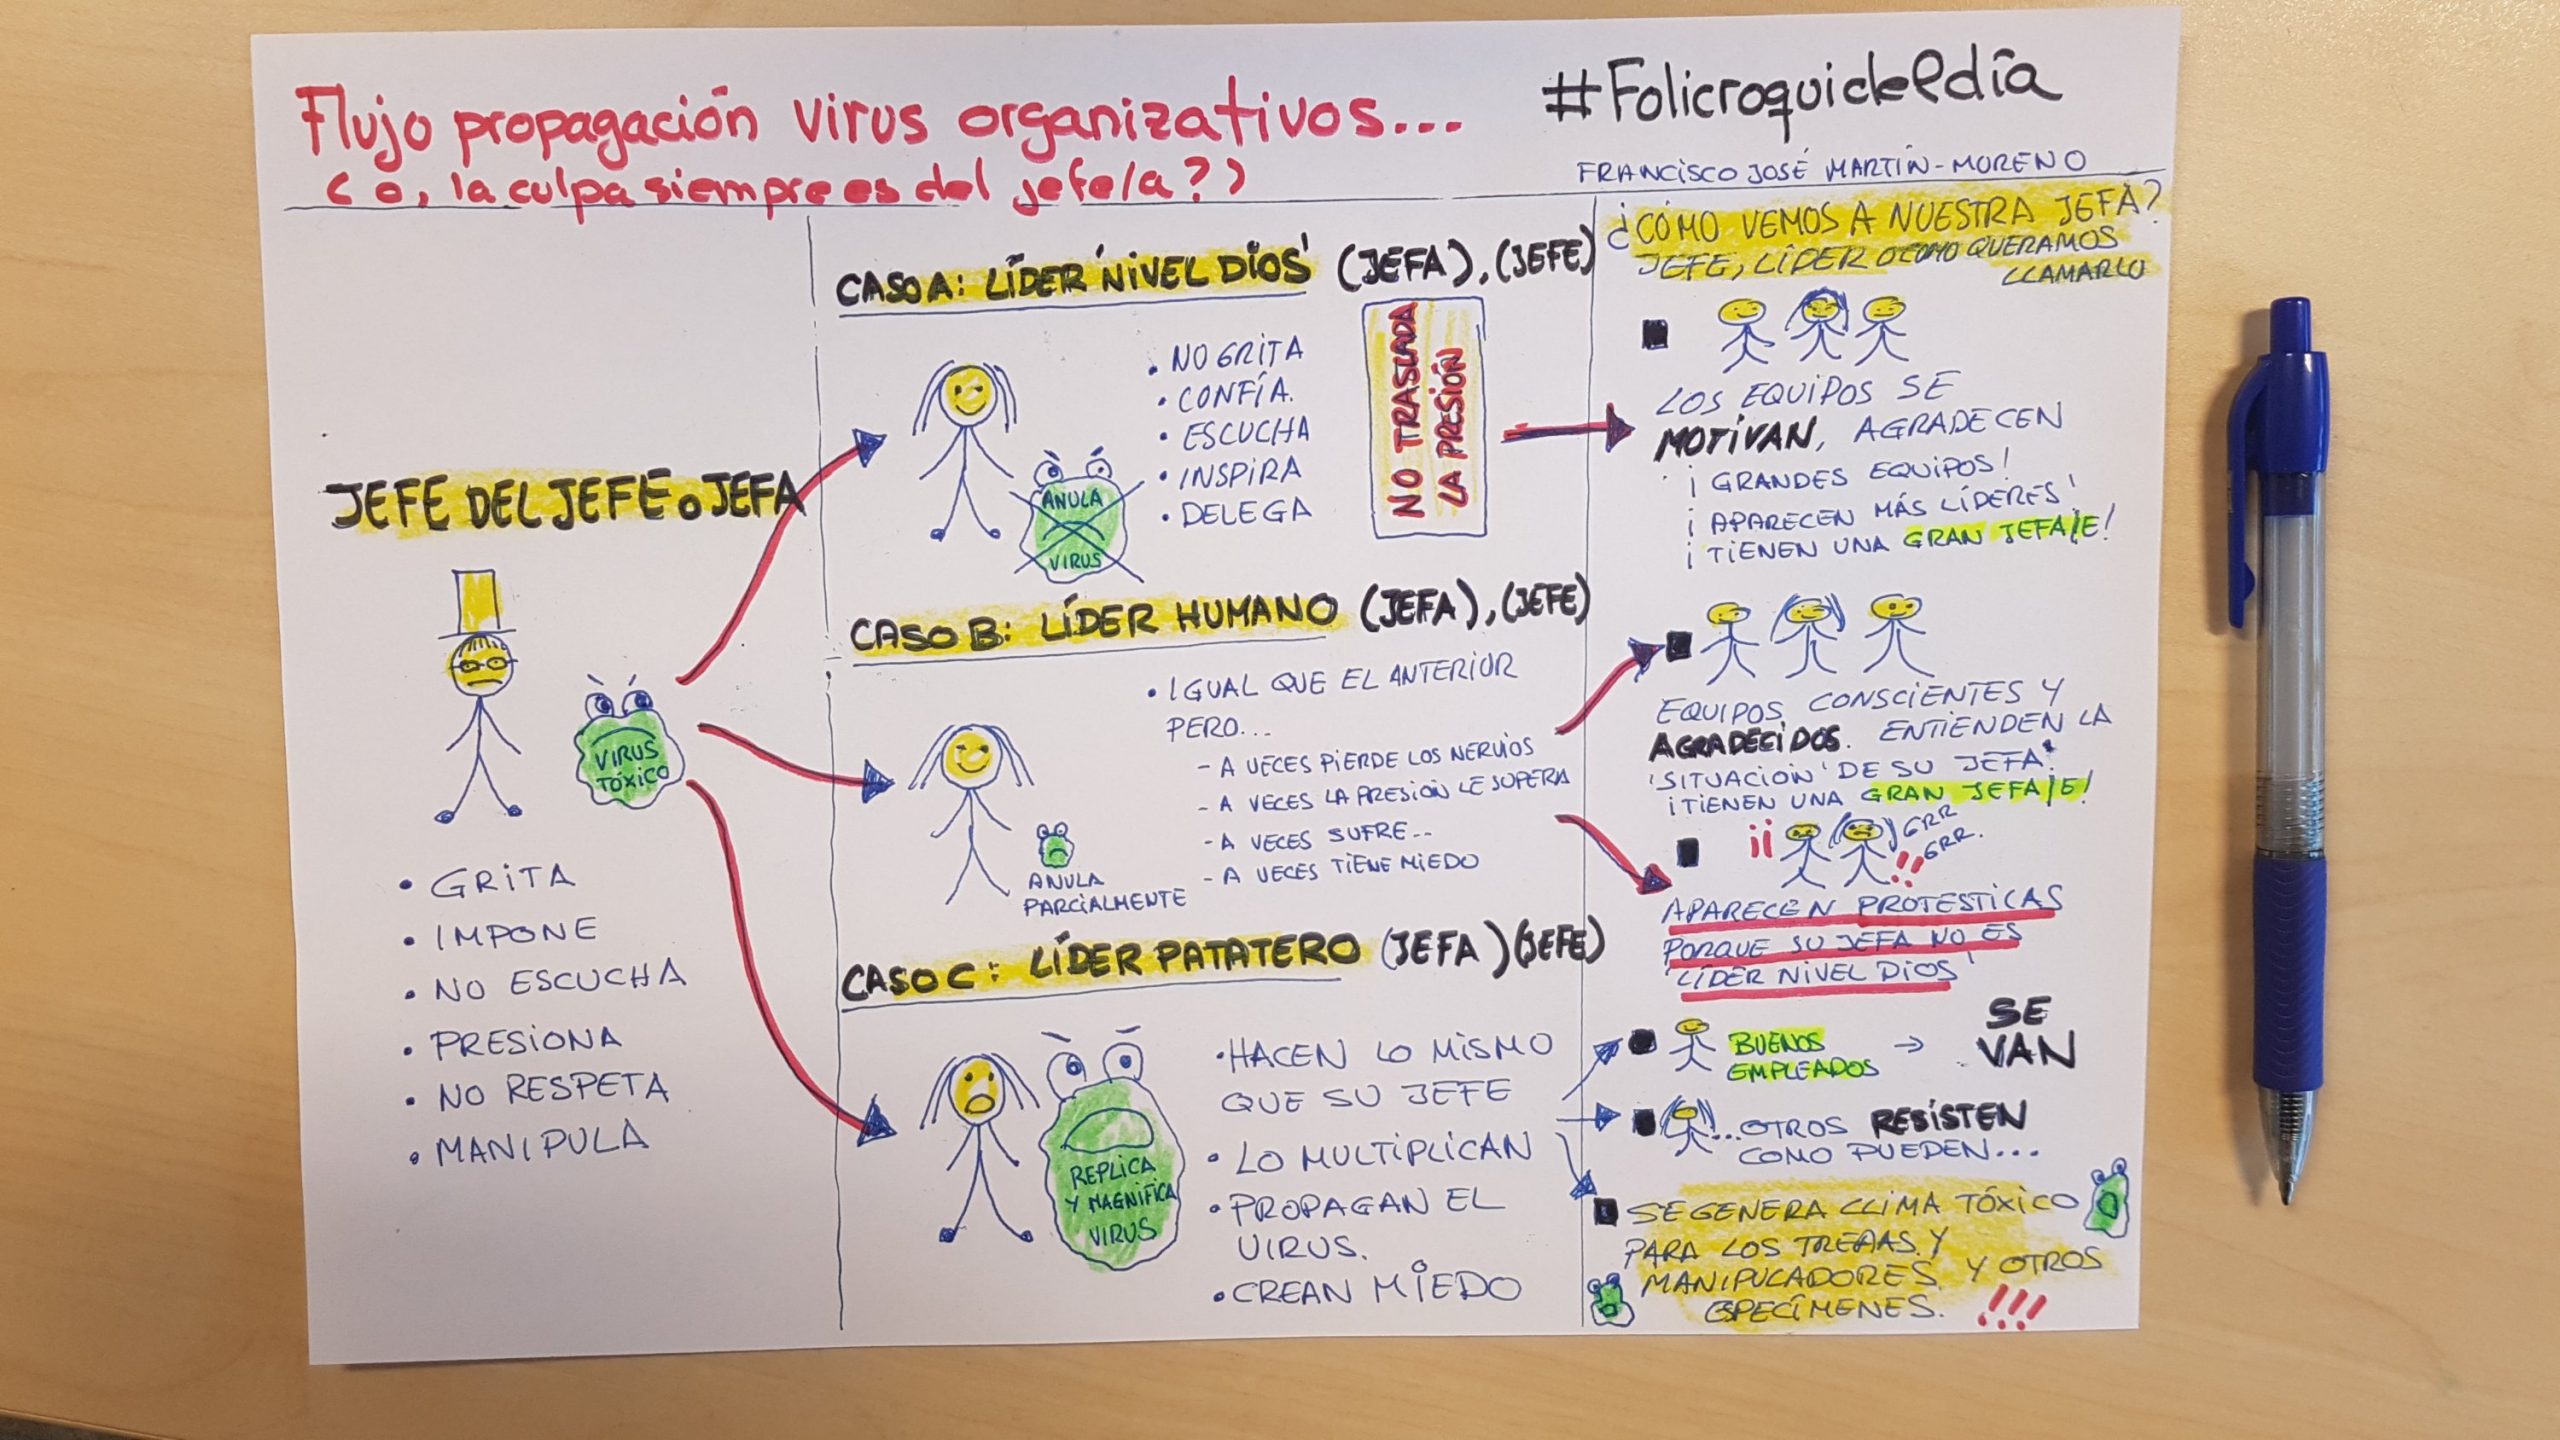 Flujo propagación virus organizativos...
(o, la culpa siempre es del jefe/a?)
#Folicroquideldía
FRANCISCO JOSÉ MARTÍN-MORENO
JEFE DEL JEFE o JEFA
VIRUS
TÓXICO
• GRITA
• IMPONE
• NO ESCUCHA
• PRESIONA
• NO RESPETA
• MANIPULA
CASO A: LÍDER 'NIVEL DIOS' (JEFA), (JEFE)
• NO GRITA
• CONFÍA.
• ESCUCHA
• INSPIRA
• DELEGA
ANULA
VIRUS
NO TRASLADA
LA PRESIÓN
CASO B: LÍDER HUMANO (JEFA), (JEFE)
• IGUAL QUE EL ANTERIOR
PERO...
- A VECES PIERDE LOS NERVIOS
- A VECES LA PRESIÓN LE SUPERA
- A VECES SUFRE...
- A VECES TIENE MIEDO
ANULA
PARCIALMENTE
CASO C: LÍDER PATATERO (JEFA) (JEFE)
• HACEN LO MISMO
QUE SU JEFE
• LO MULTIPLICAN
• PROPAGAN EL
VIRUS.
• CREAN MIEDO
REPLICA
Y MAGNIFICA
VIRUS
¿CÓMO VEMOS A NUESTRA JEFA?
JEFE, LÍDER O COMO QUERAMOS
LLAMARLO
LOS EQUIPOS SE
MOTIVAN, AGRADECEN
¡GRANDES EQUIPOS!
¡APARECEN MÁS LÍDERES!
¡TIENEN UNA GRAN JEFA/E!
EQUIPOS CONSCIENTES Y
AGRADECIDOS. ENTIENDEN LA
'SITUACIÓN' DE SU JEFA.
¡TIENEN UNA GRAN JEFA/E!
¡¡ GRR
!! GRR.
APARECEN PROTESTICAS
PORQUE SU JEFA NO ES
'LÍDER NIVEL DIOS'
BUENOS
EMPLEADOS → SE
VAN
...OTROS RESISTEN
COMO PUEDEN...
SE GENERA CLIMA TÓXICO
PARA LOS TREPAS Y
MANIPULADORES Y OTROS
ESPECÍMENES. !!!